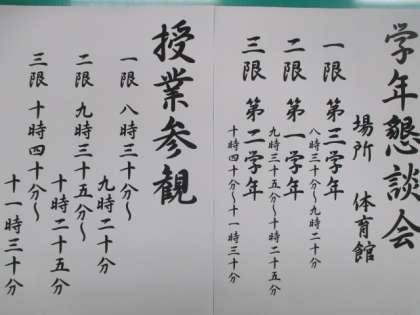 学年懇談会
場所 体育館
一限 第三学年
八時三十分～九時二十分
二限 第一学年
九時三十五分～十時二十五分
三限 第二学年
十時四十分～十一時三十分
授業参観
一限 八時三十分～
九時二十分
二限 九時三十五分～
十時二十五分
三限 十時四十分～
十一時三十分